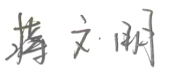 蒋文明